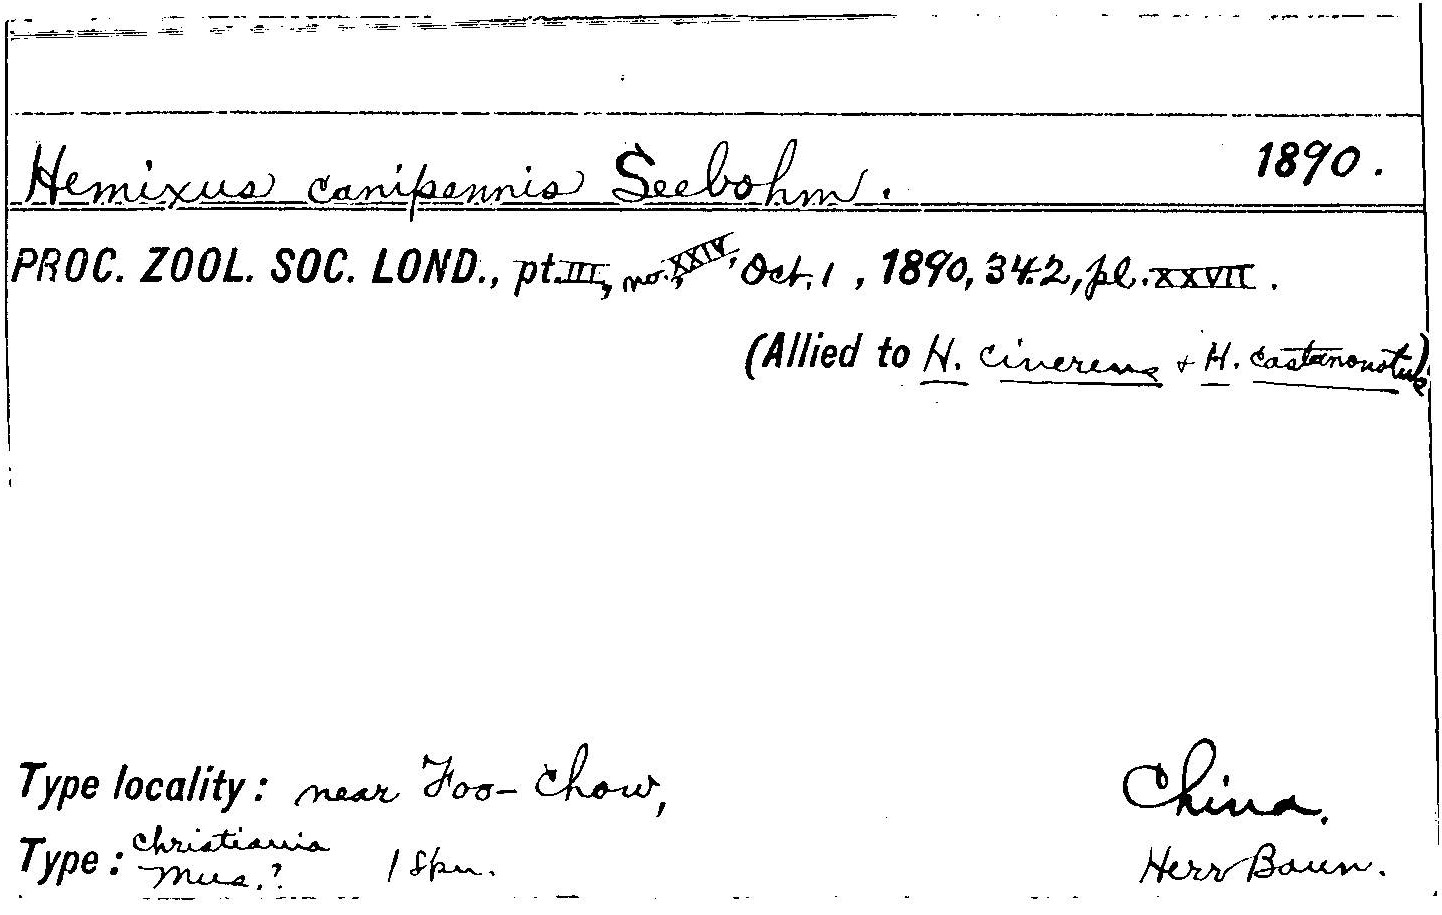 Hemixus canipennis Seebohm. 1890.
PROC. ZOOL. SOC. LOND., pt. III, no. XXIV, Oct. 1, 1890, 342, pl. XXVII.
(Allied to H. cinereus + H. castanonotus)
Type locality: near Foo-Chow, China.
Type: Christiania Mus.? 1 spm. Herr Baun.